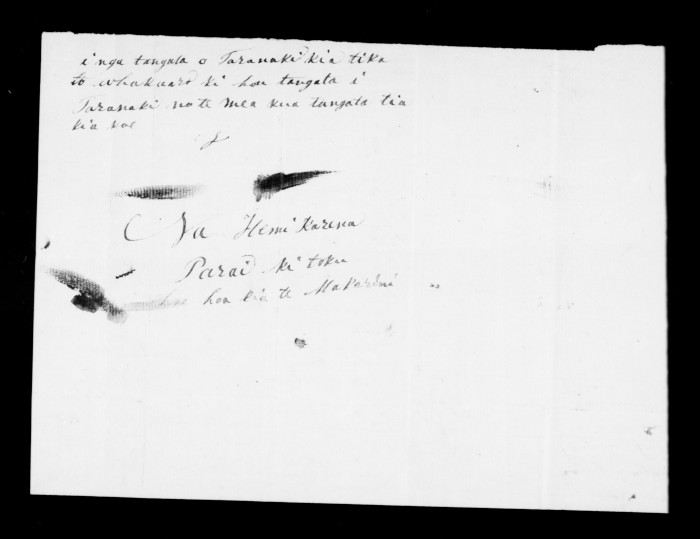 i nga tangata o Taranaki kia tika
to whakaaro ki hou tangata i
Taranaki no te mea kua tangata tia
kia koe
Na Hemi Karena
Parai ki toku
hoa kia te Makarini